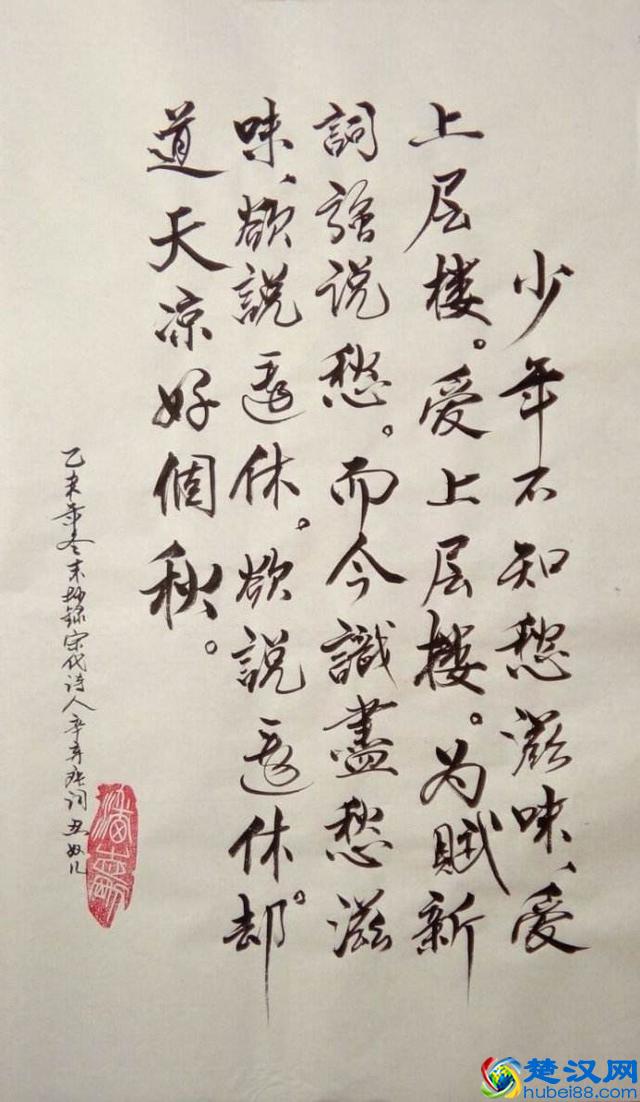 少年不知愁滋味、爱
上层楼。爱上层楼。为赋新
詞強说愁。而今識盡愁滋
味、欲説還休。欲説還休。却
道天凉好個秋。
乙未年冬末抄録宋代诗人辛弃疾词
楚汉网
hubei88.com